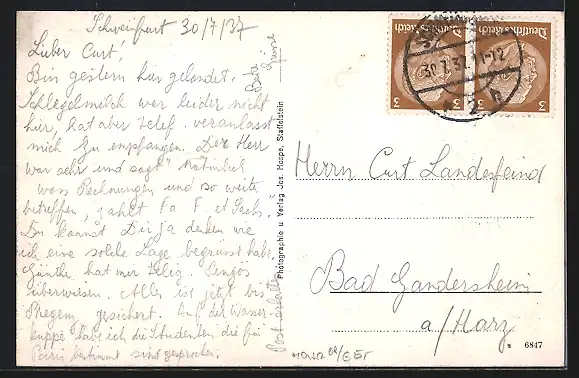 Schweinfurt 30/7/37
Lieber Curt!
Bin gestern hier gelandet.
Schlegelmilch war leider nicht
hier, hat aber telef. veranlasst
mich zu empfangen. Der Herr
war sehr und sagt" Natürlich
was Rechnungen und so weiter
betreffen, zahlt F & S
Du kannst Dir ja denken wie
ich eine solche Lage begrüsst habe.
Günther hat mir telegr. Pengös
überwiesen. Alles ist jetzt bis
gesichert. Auf der Wasser-
kuppe hab ich die Studenten die für
Paris bestimmt sind gesprochen.
Post erhalten
Photographie u Verlag Jos. Hospe, Staffelstein
Deutsches Reich
3
Deutsches Reich
3
30.7.37.11-12
Herrn Curt Landesfeind
Bad Gandersheim
a/Harz
6847